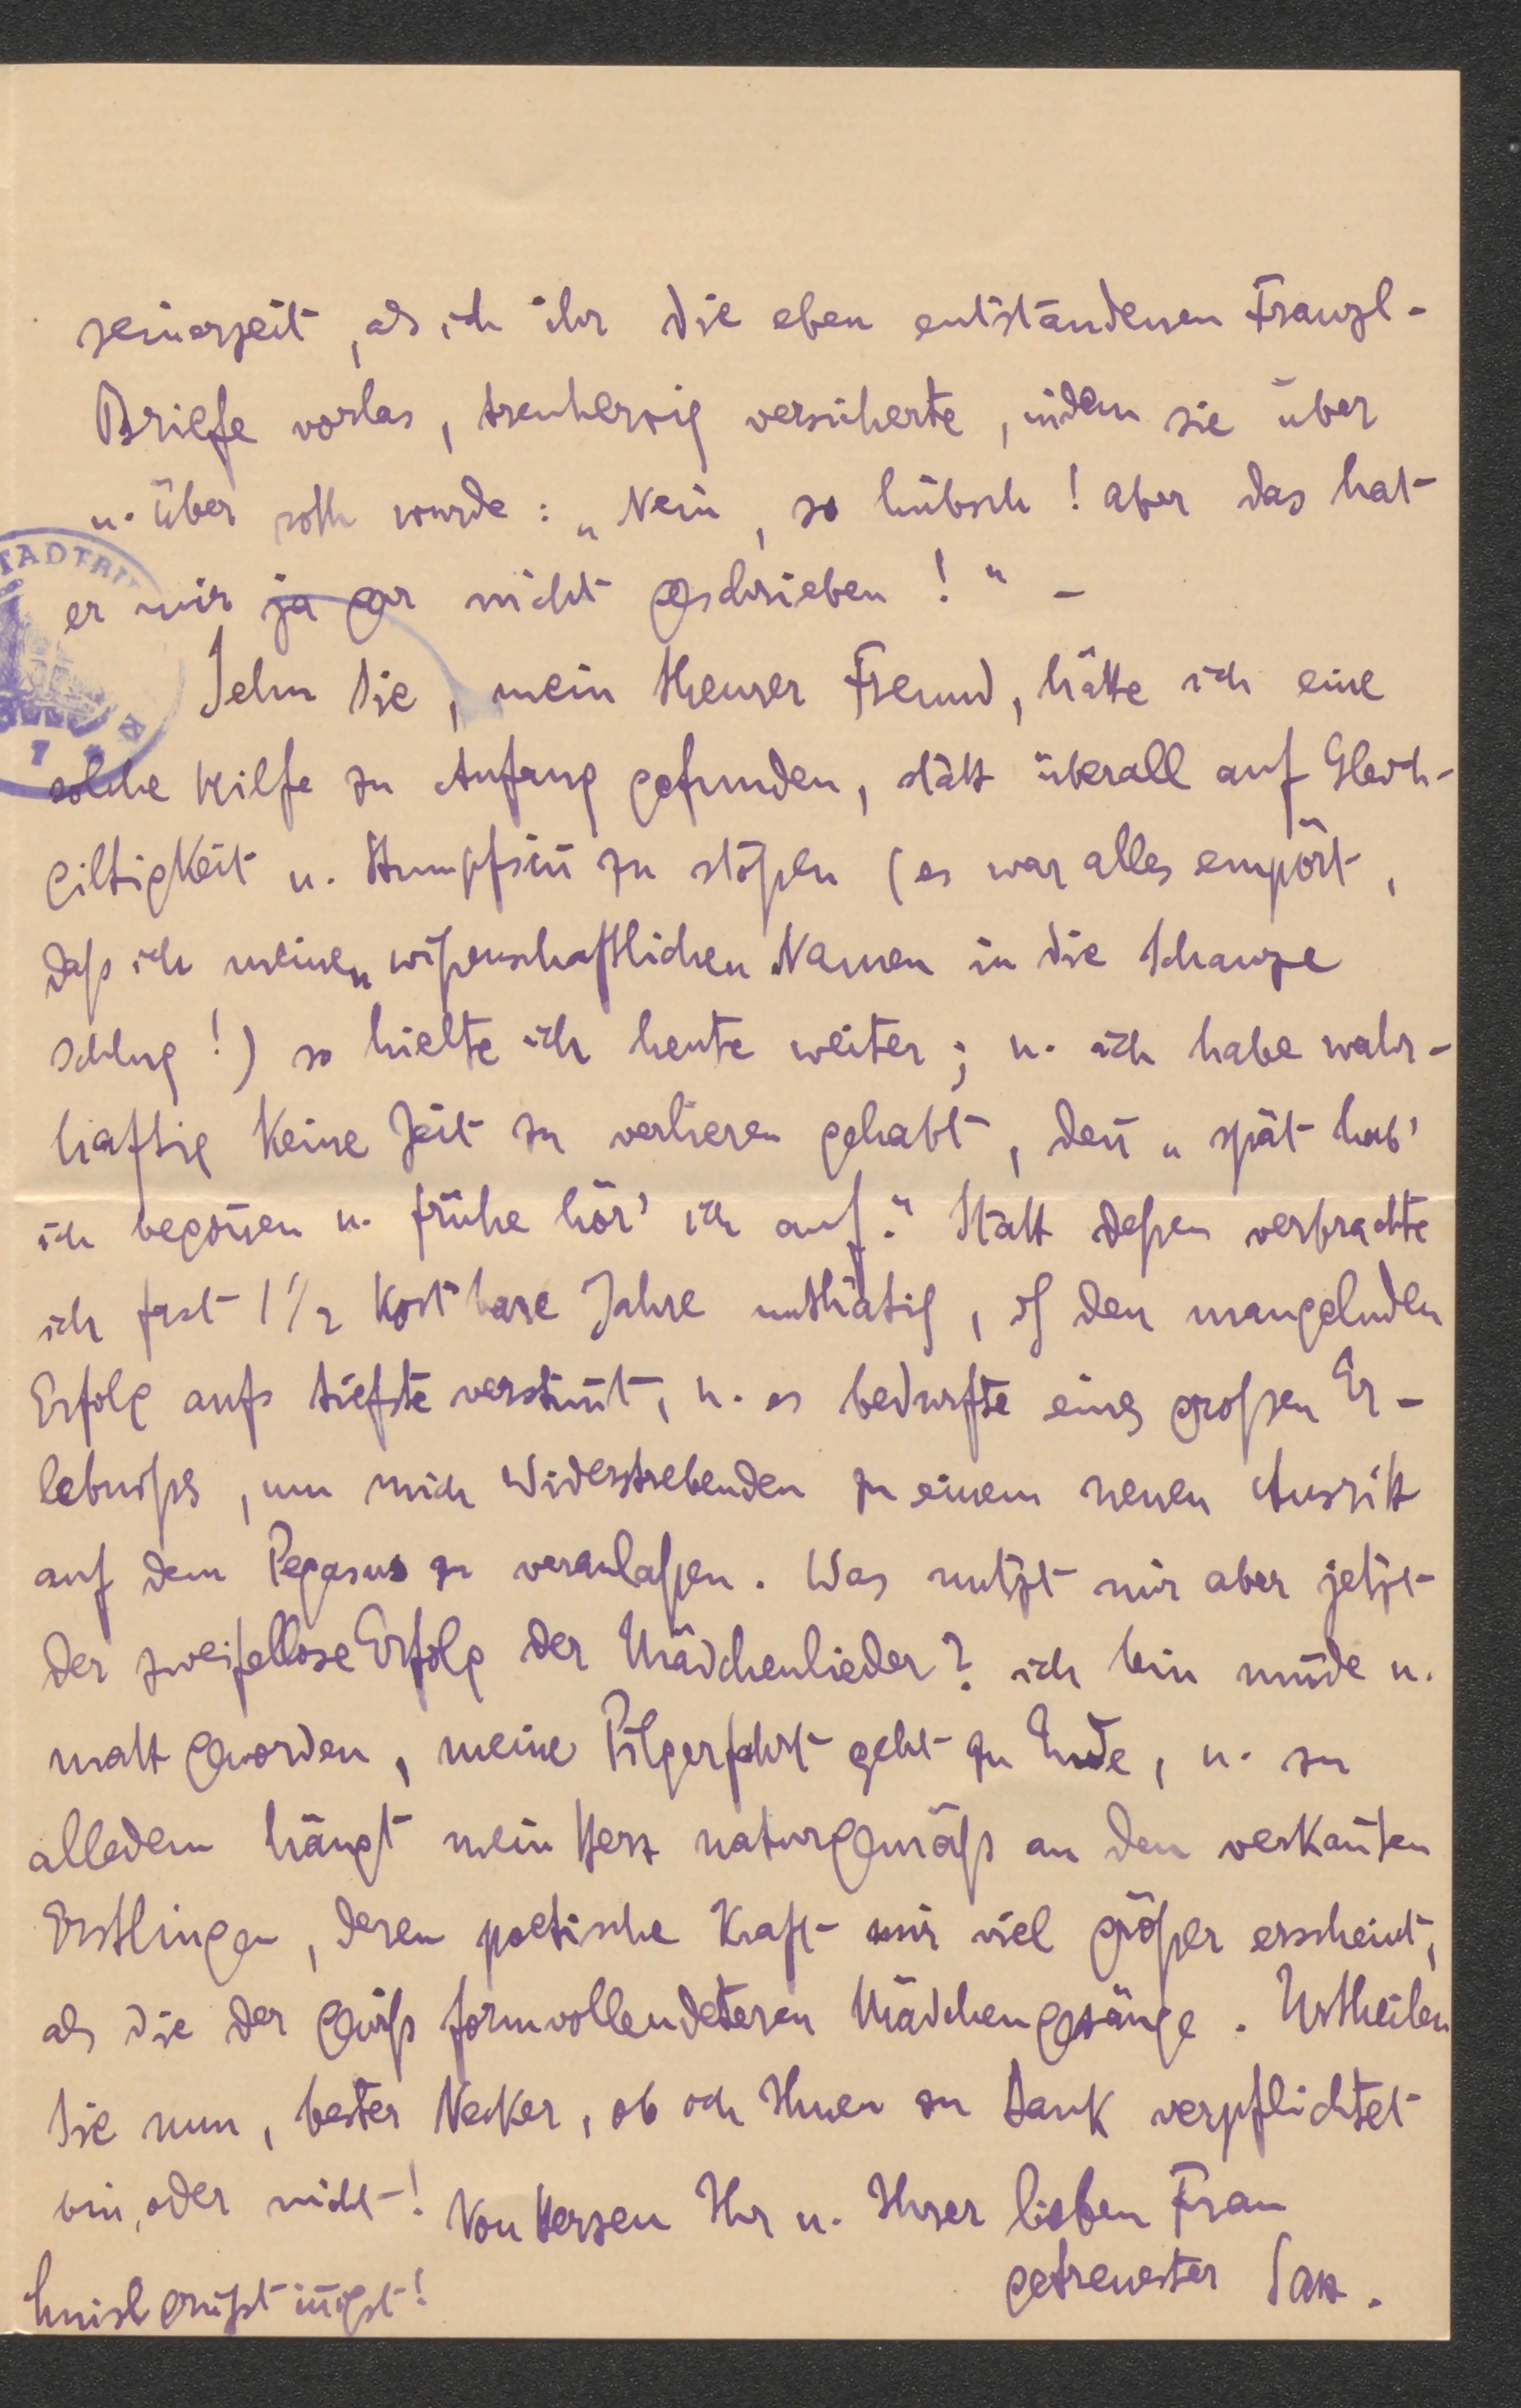 seinerzeit, als ich ihr die eben entstandenen Franzl-
Briefe vorlas, treuherzig versicherte, indem sie über
u. über roth wurde: „Nein, so hübsch! aber das hat
er mir ja gar nicht geschrieben!" –
STADTBI
Sehn Sie, mein theurer Freund, hätte ich eine
solche Hilfe zu Anfang gefunden, statt überall auf Gleich-
7
giltigkeit u. Stumpfsin̄ zu stoßen (es war alles empört,
daß ich meinen wißenschaftlichen Namen in die Schanze
schlug!) so hielte ich heute weiter; u. ich habe wahr-
haftig keine Zeit zu verlieren gehabt, den̄ „spät hab'
ich begon̄en u. frühe hör' ich auf." Statt deßen verbrachte
ich fast 1 1/2 kostbare Jahre unthätig, den mangelnden
Erfolg aufs tiefste verstim̄t, u. es bedurfte eines großen Er-
lebnißes, um mich Widerstrebenden zu einem neuen Ausritt
auf dem Pegasus zu veranlaßen. Was nutzt mir aber jetzt
der zweifellose Erfolg der Mädchenlieder? ich bin müde u.
matt geworden, meine Pilgerfahrt geht zu Ende, u. zu
alledem hängt mein Herz naturgemäß an den verkan̄ten
Erstlingen, deren poetische Kraft mir viel größer erscheint,
als die der gewiß formvollendeteren Mädchengesänge. Urtheilen
Sie nun, bester Necker, ob ich Ihnen zu Dank verpflichtet
bin, oder nicht! Von Herzen Ihr u. Ihrer lieben Frau
getreuester Sax.
grüßt in̄igst!